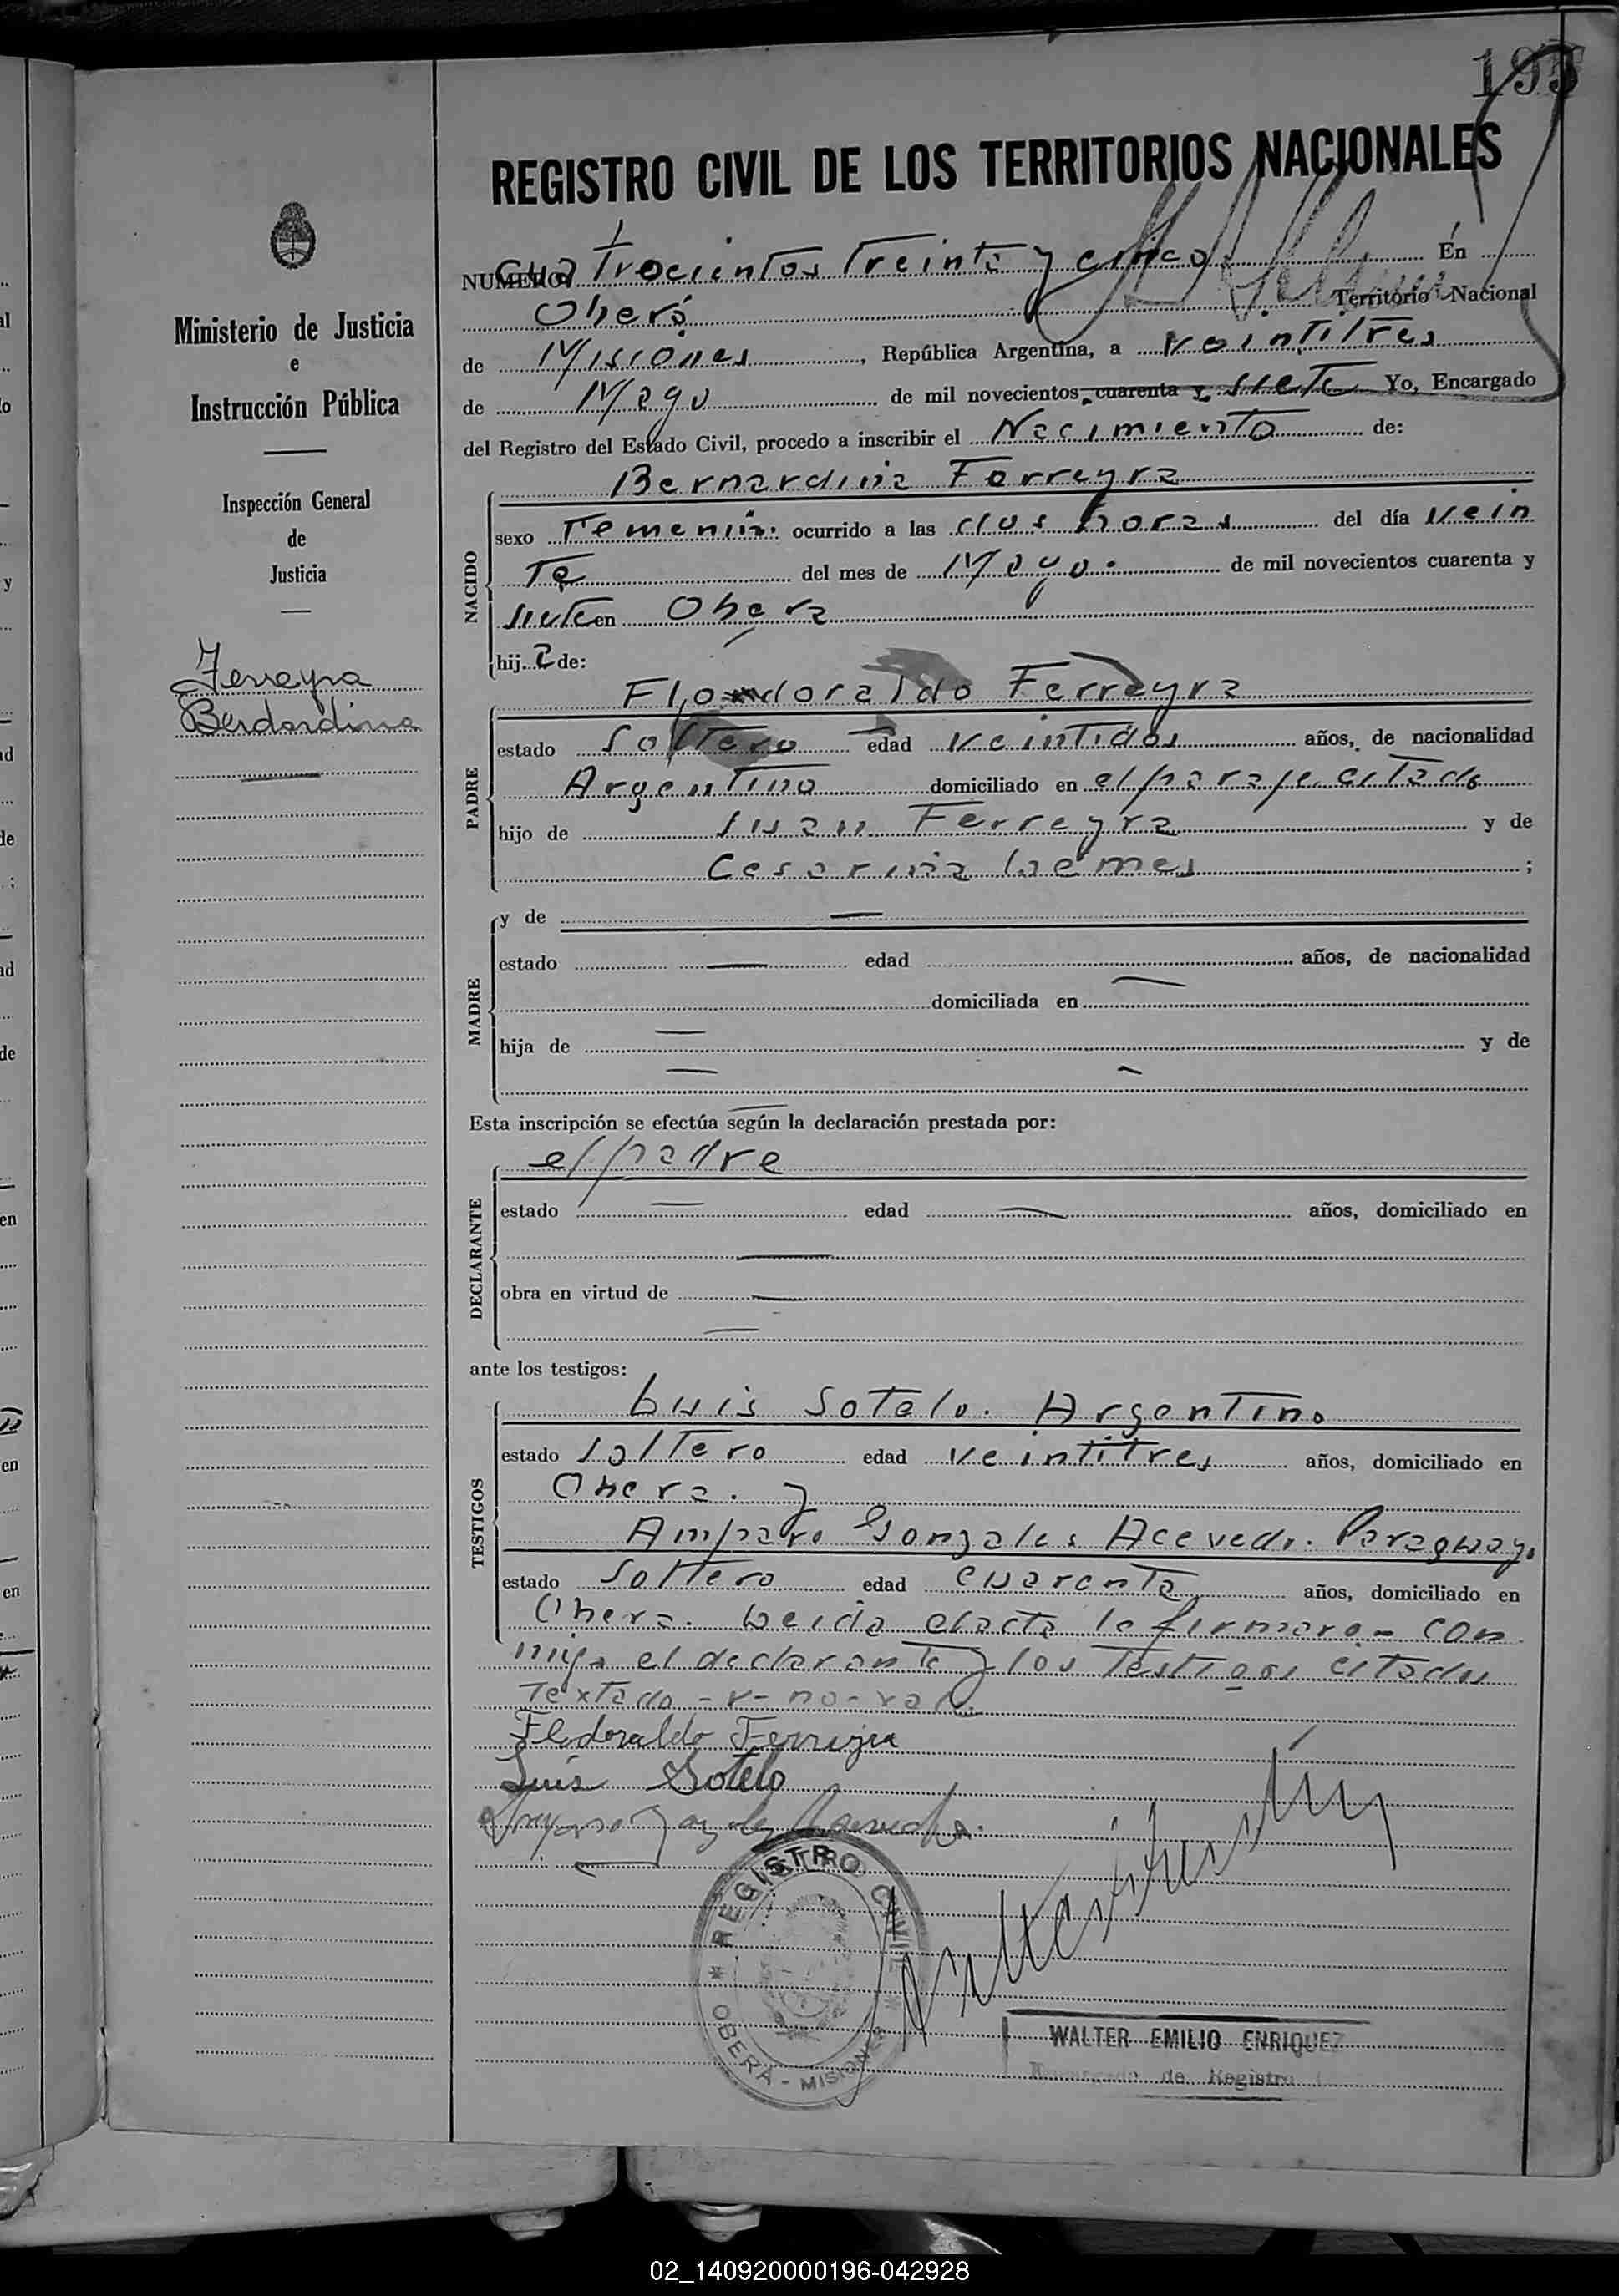 195
REGISTRO CIVIL DE LOS TERRITORIOS NACIONALES
NUMERO Cuatrocientos Treinta y cinco En
Oberá Territorio Nacional
de Misiones, República Argentina, a veintitres
de Mayo de mil novecientos cuarenta y siete Yo, Encargado
del Registro del Estado Civil, procedo a inscribir el Nacimiento de:
Ministerio de Justicia
e
Instrucción Pública
Inspección General
de
Justicia
Ferreyra
Berdardina
NACIDO
Bernardina Ferreyra
sexo Femenin. ocurrido a las dos horas del día vein
te del mes de Mayo. de mil novecientos cuarenta y
siete en Obera
hija de:
PADRE
Flordoraldo Ferreyra
estado Soltero edad veintidos años, de nacionalidad
Argentino domiciliado en el paraje citado
hijo de Juan Ferreyra y de
Cesarina Lemes ;
MADRE
y de —
estado — edad años, de nacionalidad —
domiciliada en
hija de — y de
— —
Esta inscripción se efectúa según la declaración prestada por:
DECLARANTE
el padre
estado — edad — años, domiciliado en
—
obra en virtud de —
—
ante los testigos:
TESTIGOS
Luis Sotelo. Argentino
estado soltero edad veintitres años, domiciliado en
Obera. y
Amparo Gonzales Acevedo. Paraguayo
estado Soltero edad cuarenta años, domiciliado en
Obera. Leida el acta la firmaron con
migo el declarante y los Testigos citados
Textado - r - no - vale
Flodoraldo Ferreyra
Luis Sotelo
REGISTRO CIVIL
OBERÁ - MISIONES
WALTER EMILIO ENRIQUEZ
Encargado de Registro
02_140920000196-042928